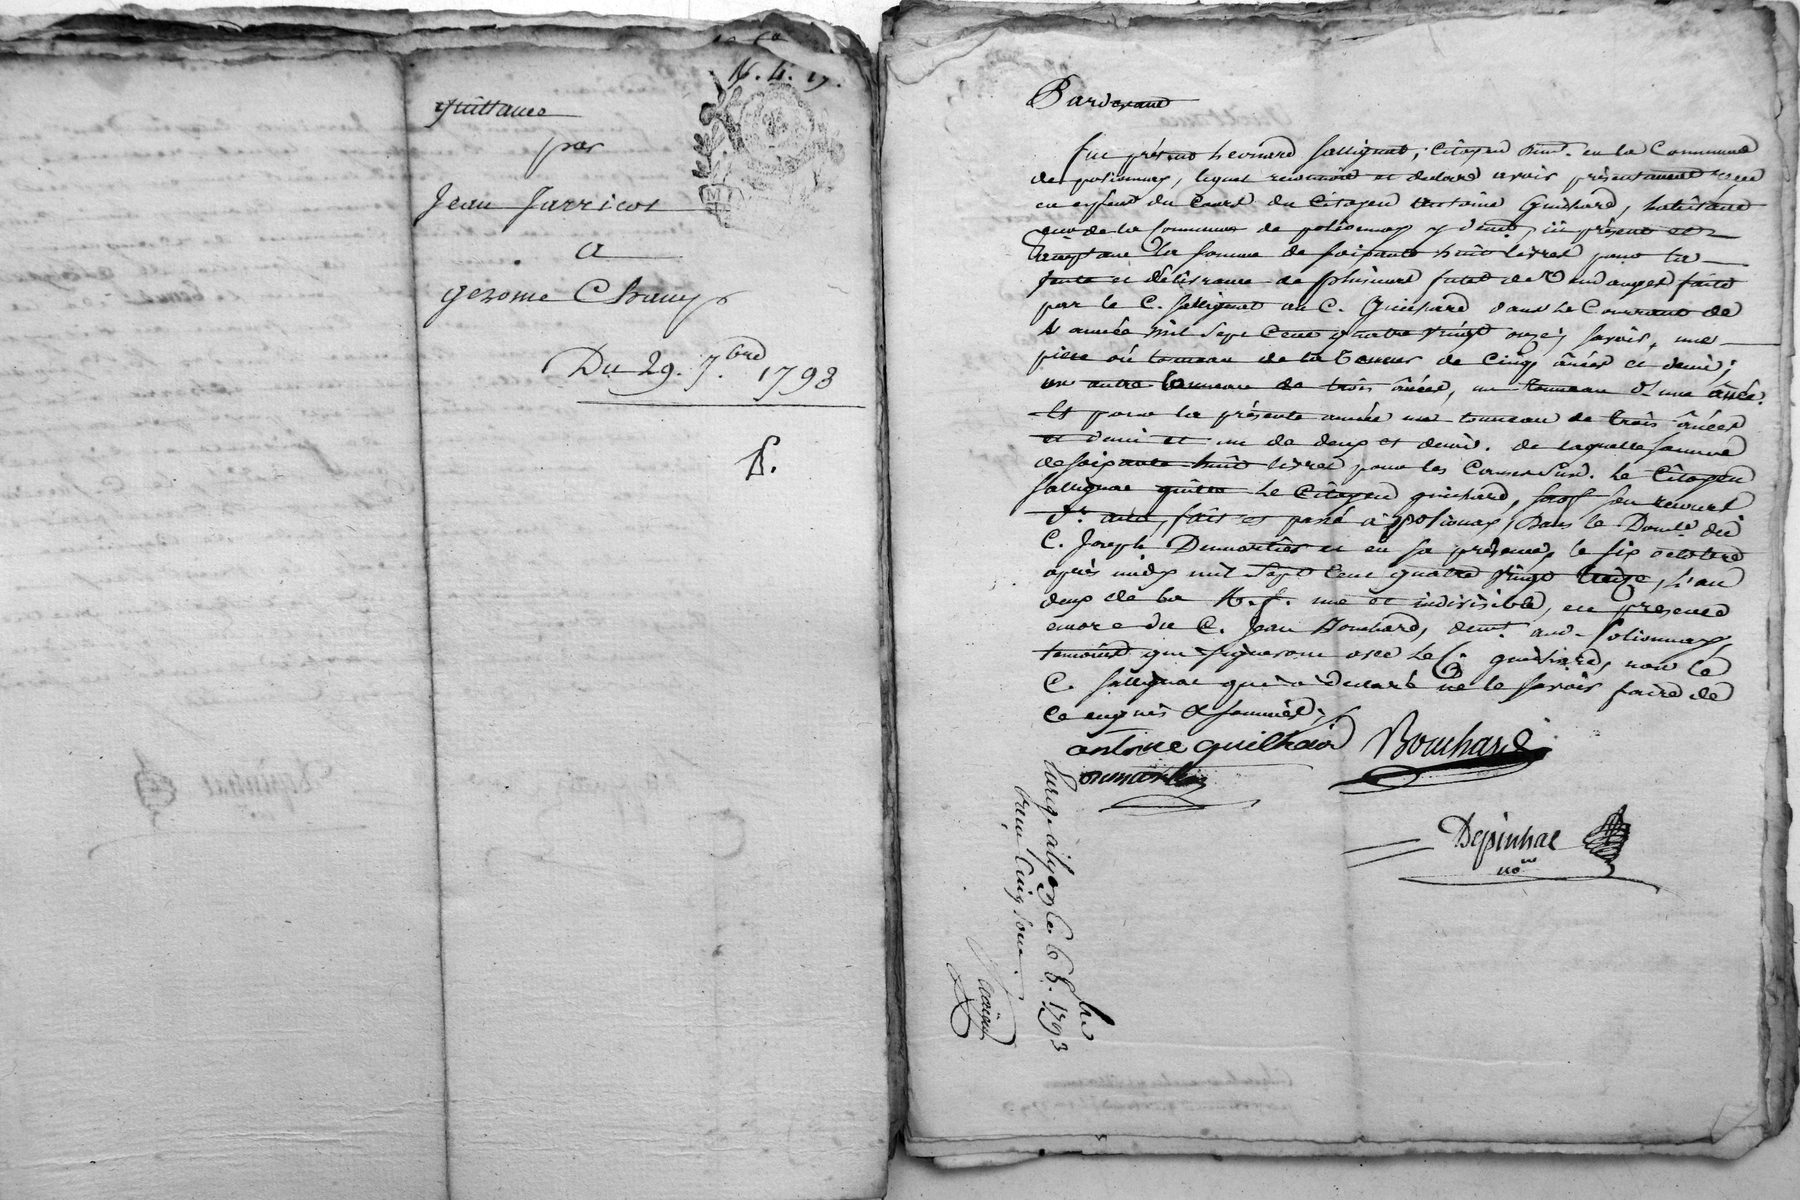 N. 4. 17.
quittance
par
Jean Jarricot
a
gerome Chany
Du 29. 7.bre 1793
Pardevant
fut présent Léonard Sallignat, Citoyen demt. en la Commune
de polionnay, lequel reconnoit et declare avoir présentement reçu
en espèces du Cours du Citoyen Antoine Guichard, habitant
de la Commune de polionnay y demt. ici présent et
acceptant la somme de soixante huit livres pour la
vente et délivrance de plusieurs futs de Vendanges faite
par le C. Sallignat au C. Guichard dans le Courant de
l'année mil sept cent quatre vingt onze; savoir, une
pièce ou tonneau de la teneur de Cinq ânées et demi;
un autre tonneau de trois ânées, un tonneau d'une ânée.
Et pour la présente année un tonneau de trois ânées
et demi et un de deux et demi. de laquelle somme
de soixante huit livres pour les Causes susd. le Citoyen
Sallignat quitte le Citoyen guichard,
fait et passé à polionay, dans le Domle. du
C. Joseph Dumortier et en sa présence, le six octobre
après midy mil sept cent quatre vingt treize, l'an
deux de la R. f. une et indivisible, en présence
encore du C. Jean Bouchard, demt. aud. polionnay,
temoins qui signeront avec le C. guichard, non le
C. Sallignat qui a déclaré ne le savoir faire de
ce enquis et sommé;
antoine guichard Bouchard
Dumortier
Depinhac
no.re
Enreg. a lyon le 6 8.bre 1793
reçu Cinq sous